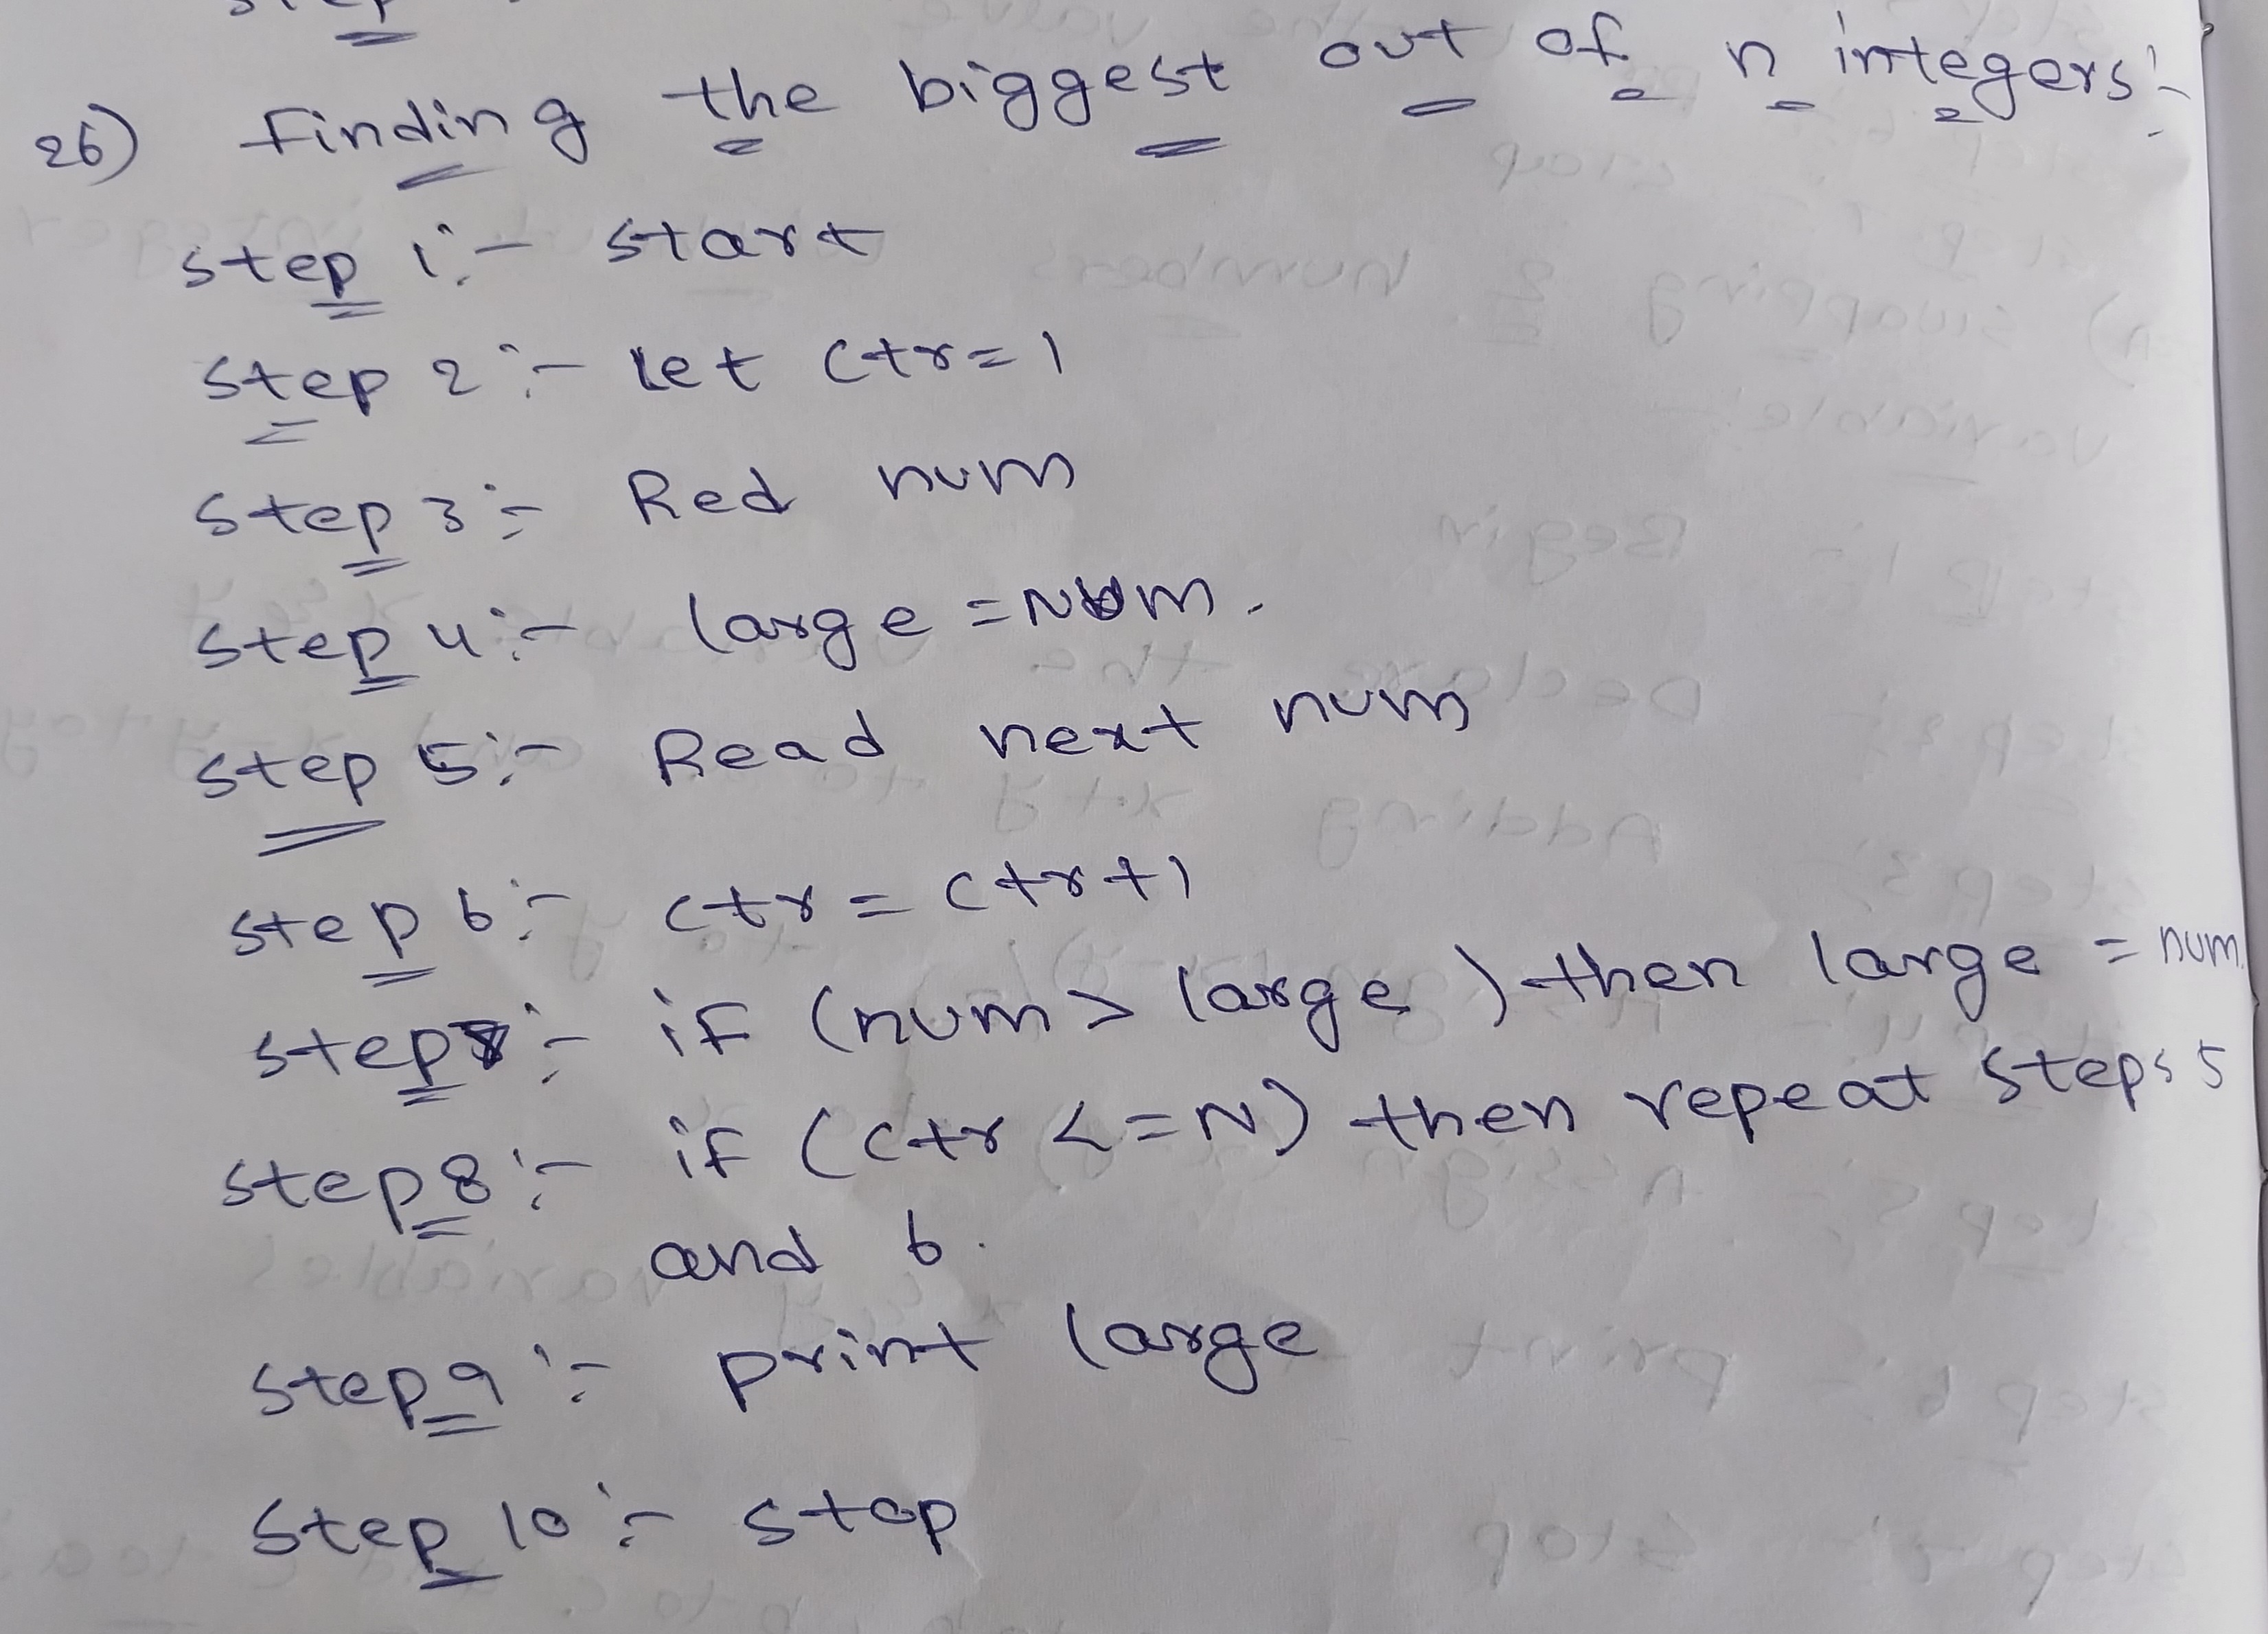 26) Finding the biggest out of n integers:-
step 1:- start
step 2:- let ctr=1
step 3:- Red num
step 4:- large =Num.
step 5:- Read next num
step 6:- ctr = ctr+1
step 7:- if (num> large) then large = num.
step 8:- if (ctr <=N) then repeat steps 5
and 6.
step 9:- print large
step 10:- stop